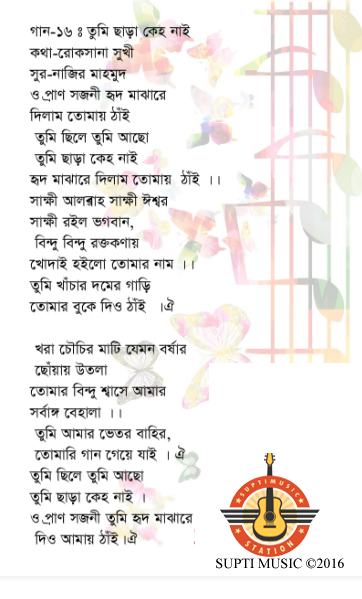 গান-১৬ ঃ তুমি ছাড়া কেহ নাই
কথা-রোকসানা সুখী
সুর-নাজির মাহমুদ
ও প্রাণ সজনী হৃদ মাঝারে
দিলাম তোমায় ঠাঁই
তুমি ছিলে তুমি আছো
তুমি ছাড়া কেহ নাই
হৃদ মাঝারে দিলাম তোমায় ঠাঁই ।।
সাক্ষী আলল্লাহ সাক্ষী ঈশ্বর
সাক্ষী রইল ভগবান,
বিন্দু বিন্দু রক্তকণায়
খোদাই হইলো তোমার নাম ।।
তুমি খাঁচার দমের গাড়ি
তোমার বুকে দিও ঠাঁই ।ঐ
খরা চৌচির মাটি যেমন বর্ষার
ছোঁয়ায় উতলা
তোমার বিন্দু শ্বাসে আমার
সর্বাঙ্গ বেহালা ।।
তুমি আমার ভেতর বাহির,
তোমারি গান গেয়ে যাই । ঐ
তুমি ছিলে তুমি আছো
তুমি ছাড়া কেহ নাই ।
ও প্রাণ সজনী তুমি হৃদ মাঝারে
দিও আমায় ঠাঁই ।ঐ
SUPTI MUSIC
STATION
SUPTI MUSIC ©2016